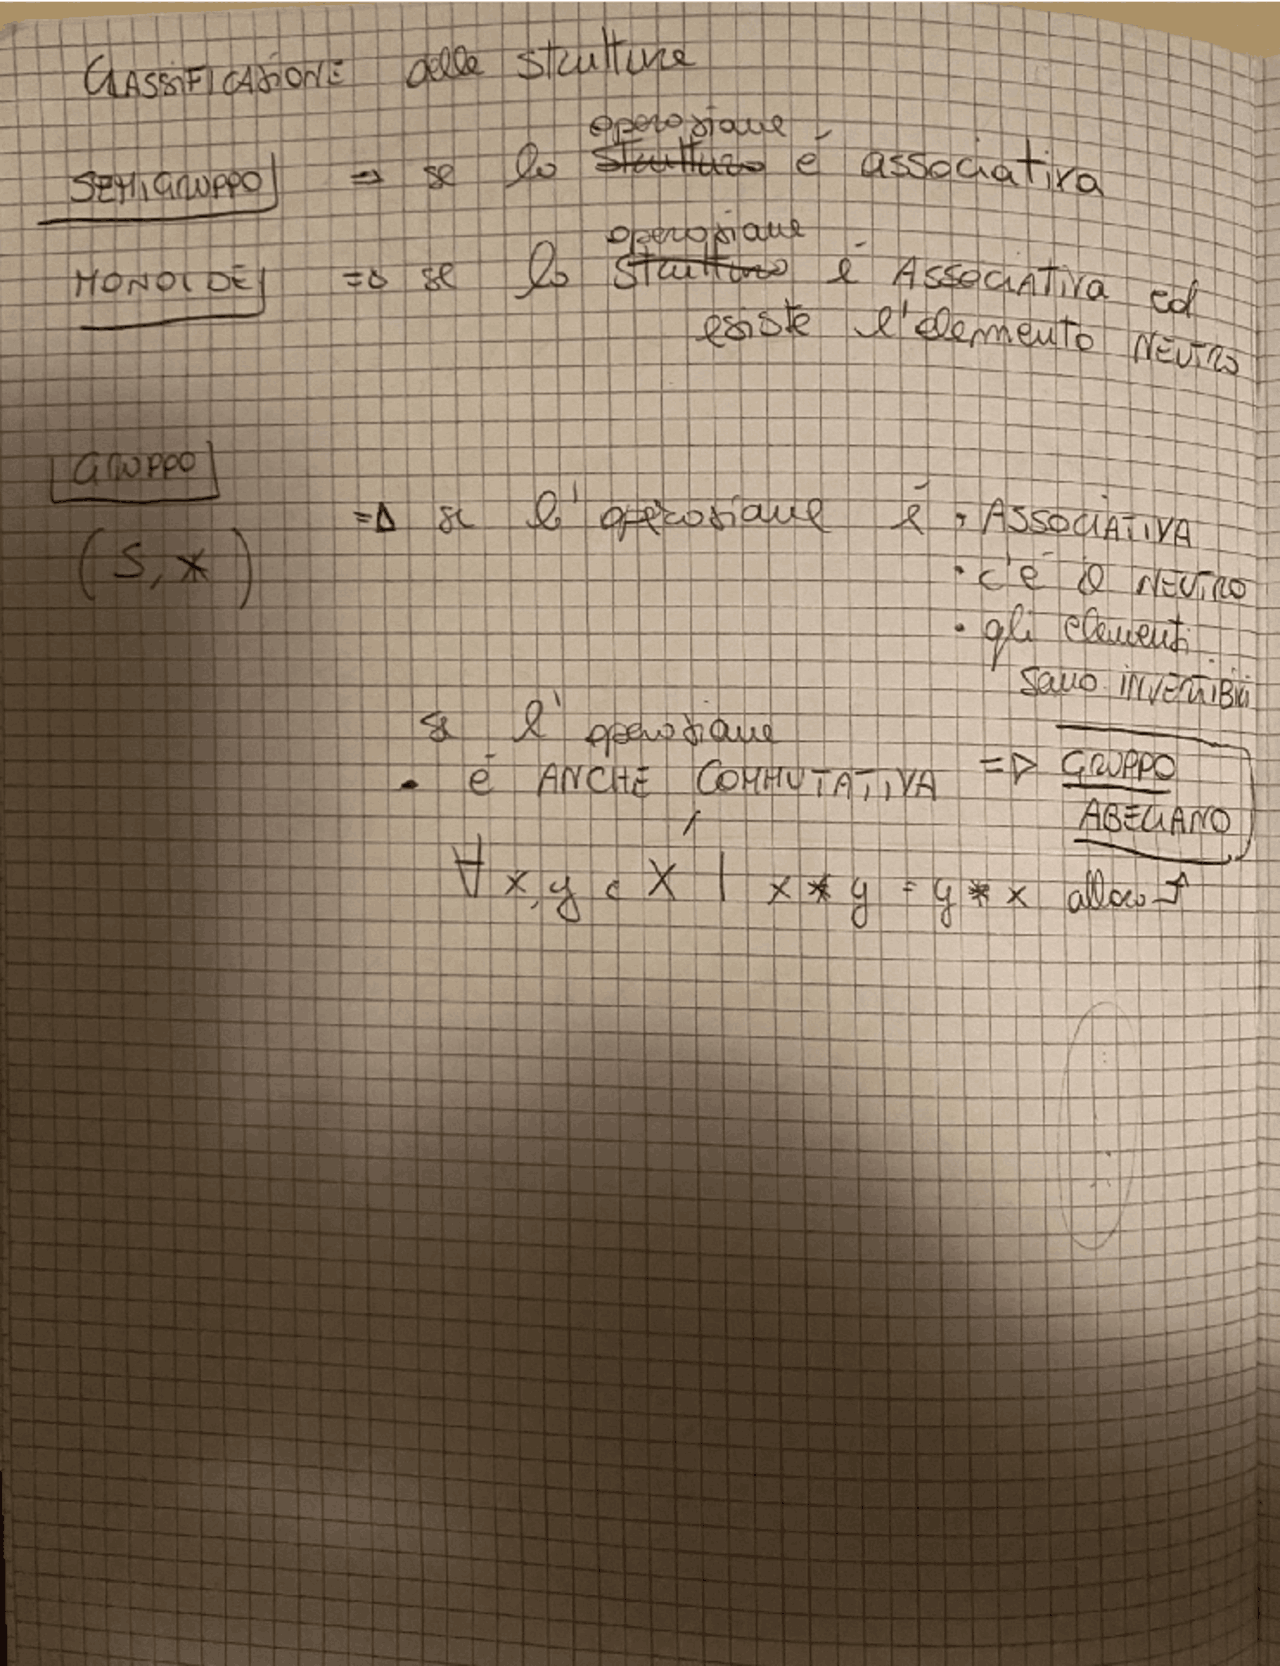 CLASSIFICAZIONE delle strutture
operazione
SEMIGRUPPO => se la struttura é associativa
operazione
MONOIDE => se la struttura é ASSOCIATIVA ed
esiste l'elemento NEUTRO
GRUPPO
=> se l'operazione é • ASSOCIATIVA
(S, *)
• c'é il NEUTRO
• gli elementi
sono INVERTIBILI
se l'operazione
• é ANCHE COMMUTATIVA => GRUPPO
ABELIANO
∀ x, y ∈ X | x * y = y * x allora ↑